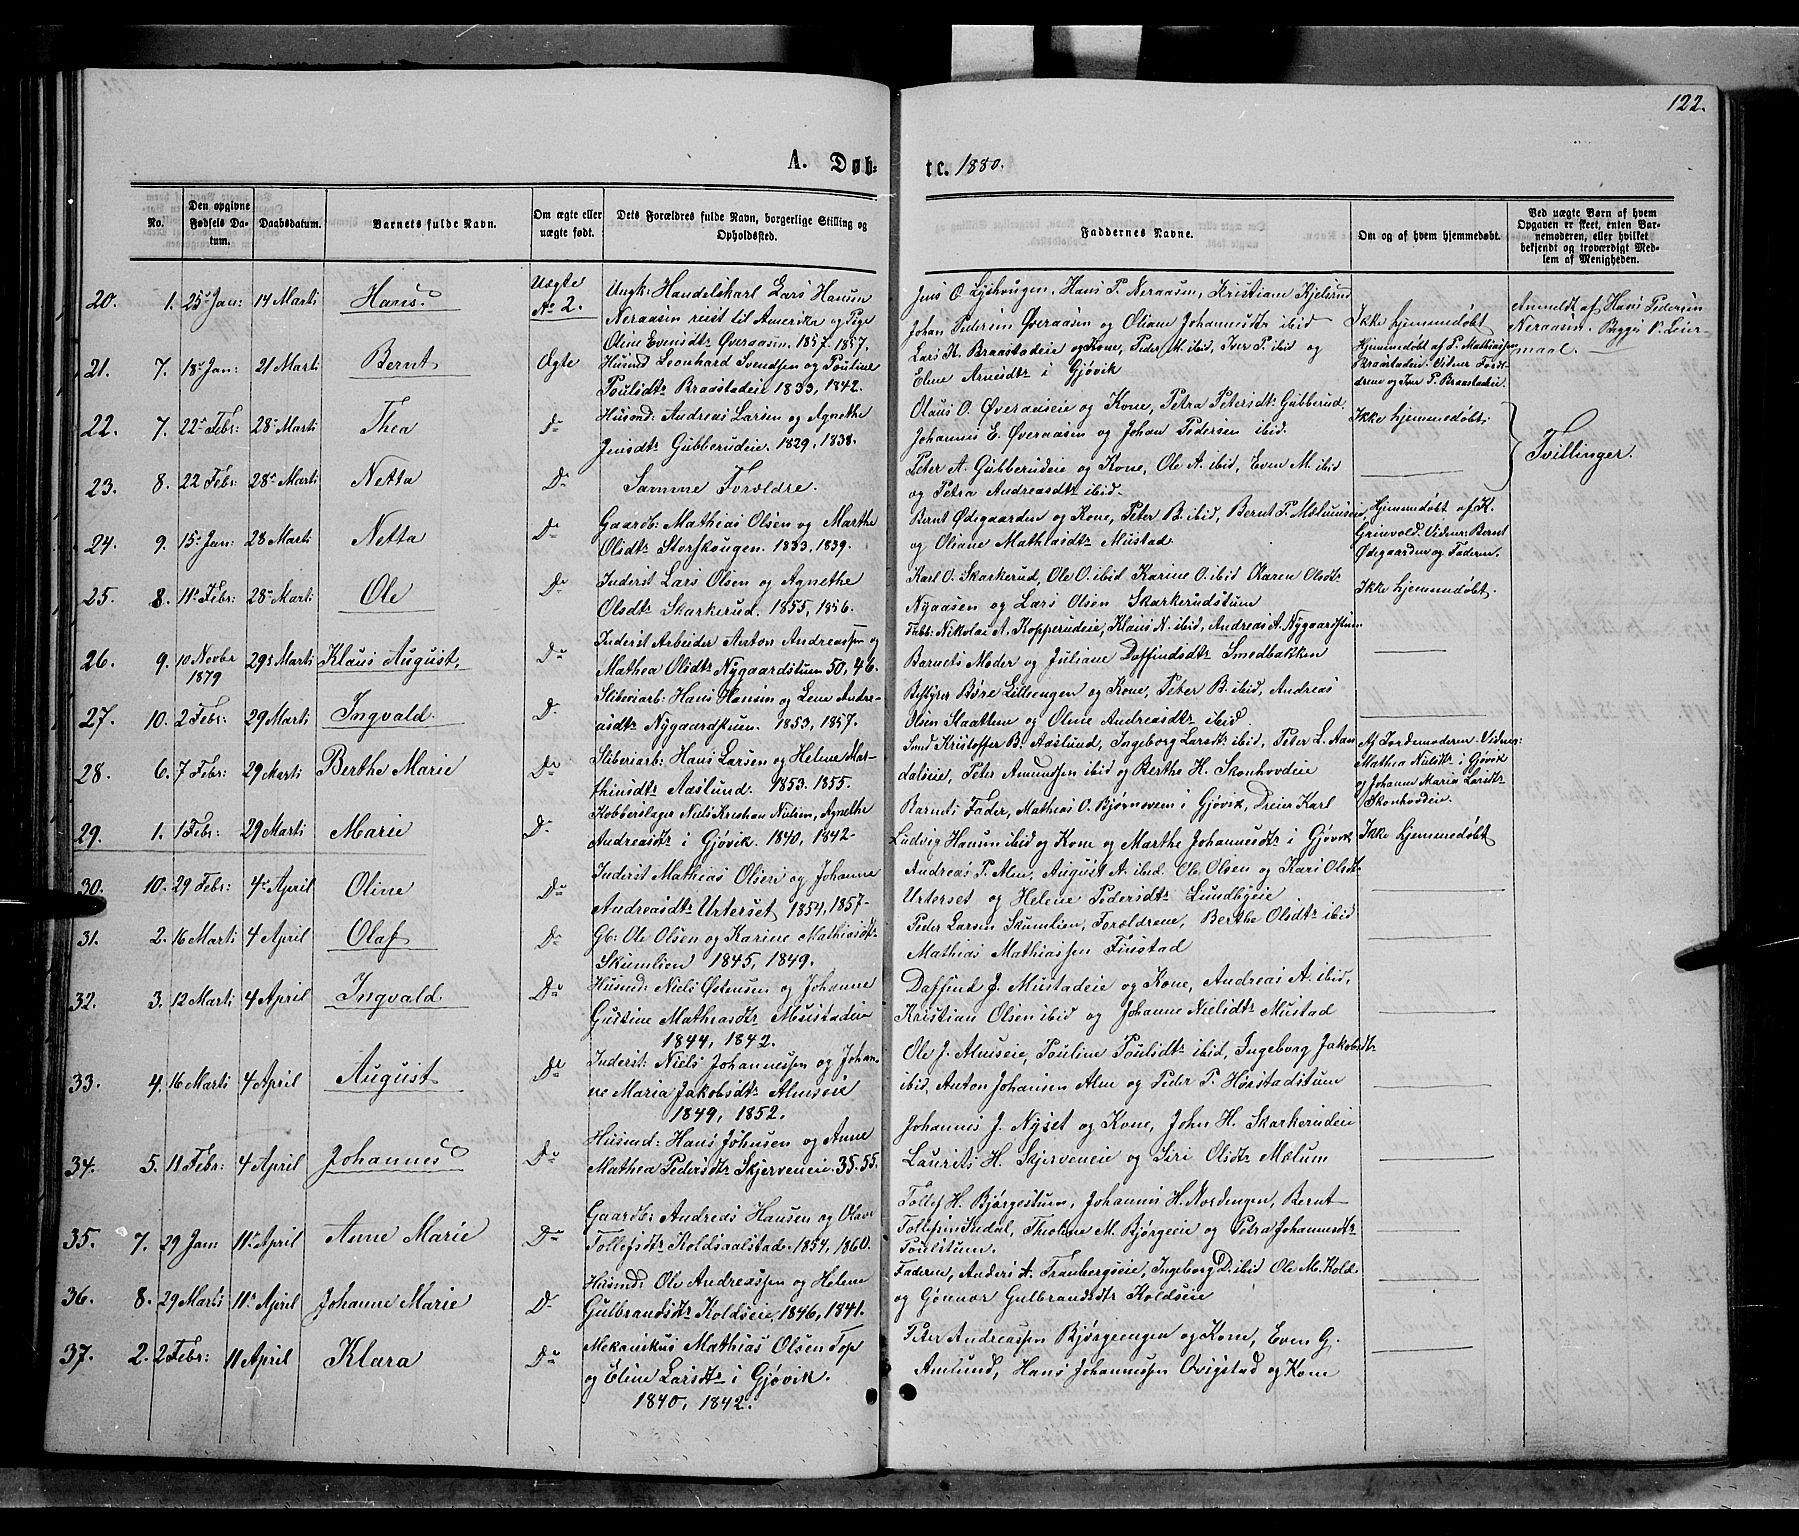 122.
A. Døb-
te. 1880.
No.
Den opgivne Fødsels Datum.
Daabsdatum.
Barnets fulde Navn.
Om ægte eller uægte født.
Dets Forældres fulde Navn, borgerlige Stilling og Opholdssted.
Faddernes Navne.
Om og af hvem hjemmedøbt.
Ved uægte Børn af hvem Opgaven er skeet, enten Barnemoderen, eller hvilket bekjendt og troværdigt Medlem af Menigheden.
20. 1. 25 Jan: 14 Marti Hans. Uægte No 2.
Ungk: Handelskarl Lars Hansen
Neraasen reist til Amerika og Pige
Oline Evensdtr Øveraasen. 1857. 1857.
Jens O. Lyshaugen, Hans P. Neraasen, Kristiane Kjelsrud
Johan Pedersen Øveraasen og Oliane Johannesdtr ibid
Ikke hjemmedøbt
Anmeldt af Hans Pedersen
Neraasen. Begges 1ste Leiermaal.
21. 7. 18 Jan: 21 Marti Bernt Ægte
Husmd Leonhard Svendsen og Pouline
Poulsdtr Braastadeie 1833, 1842.
Lars K. Braastadeie og Kone, Peder M. ibid, Iver P. ibid og
Eline Arnesdtr i Gjøvik
Hjemmedøbt af P. Mathiassen
Braastadeie. Vidner Forældrene og Iver P. Braastadeie.
22. 7. 22 Febr: 28 Marti Thea Do
Husmd: Andreas Larsen og Agnethe
Jensdtr Gubberudeie. 1829, 1838.
Olaus O. Øveraaseie og Kone, Petra Petersdtr Gubberud,
Johannes E. Øveraasen og Johan Pedersen ibid.
Ikke hjemmedøbt.
Tvillinger.
23. 8. 22 Febr: 28 Marti Netta Do
Samme Forældre.
Peter A. Gubberudeie og Kone, Ole A. ibid, Even M. ibid
og Petra Andreasdtr ibid.
24. 9. 15 Jan: 28 Marti Netta Do
Gaardb: Mathias Olsen og Marthe
Olsdtr Storskougen. 1833, 1839.
Bernt Ødegaarden og Kone, Peter B. ibid, Bernt P. Mælumseie
og Oliane Mathiasdtr Mustad.
Hjemmedøbt af K.
Grinvold. Vidner: Bernt
Ødegaarden og Faderen.
25. 8. 11 Febr: 28 Marti Ole Do
Inderst Lars Olsen og Agnethe
Olsdtr Skarkerud. 1855, 1856.
Karl O. Skarkerud, Ole O. ibid Karine O. ibid Karen Olsdtr
Nyaasen og Lars Olsen Skarkerudstuen
Ikke hjemmedøbt.
26. 9. 10 Novbr 1879 29 Marti Klaus August, Do
Inderst Arbeider Anton Andreassen og
Mathea Olsdtr Nygaardstuen 50, 46.
Fabb: Nikolai A. Kopperudeie, Klaus N. ibid, Andreas A. Nygaardstuen
Barnets Moder og Juliane Daffindsdtr Smedbakken
27. 10. 2 Febr: 29 Marti Ingvald. Do
Sliberiarb: Hans Hansen og Lene Andreasdtr Nygaardstuen. 1853, 1857.
Bestyrer Børe Lilleengen og Kone, Peter B. ibid, Andreas
Olsen Slaatten og Oline Andreasdtr ibid.
28. 6. 7 Febr: 29 Marti Berthe Marie Do
Sliberiarb: Hans Larsen og Helene Mathiasdtr Aaslund. 1853. 1855.
Smed Kristoffer B. Aaslund, Ingeborg Larsdtr ibid, Peter L. Aandalseie, Peter Amundsen ibid og Berthe H. Skonhovdeie
Af Jordemoderen. Vidner:
Mathea Nielsdtr i Gjøvik
og Johanne Maria Larsdtr
Skonhovdeie.
29. 1. 1 Febr: 29 Marti Marie Do
Kobberslager Niels Kristian Nielsen, Agnethe
Andreasdtr i Gjøvik. 1840, 1842.
Barnets Fader, Mathias O. Bjørnsveen i Gjøvik, Dreier Karl
Ludvig Hansen ibid og Kone og Marthe Johannesdtr i Gjøvik
Ikke hjemmedøbt
30. 10. 29 Febr: 4 April Oline Do
Inderst Mathias Olsen og Johanne
Andreasdtr Urterset 1854, 1857.
Andreas P. Alm, August A. ibid. Ole Olsen og Kari Olsdtr
Urterset og Helene Pedersdtr Lundbyeie
31. 2. 16 Marti 4 April Olaf Do
Gb: Ole Olsen og Karine Mathiasdtr
Skumlien 1845, 1849.
Peder Larsen Skumlien, Forældrene, Berthe Olsdtr ibid
Mathias Mathiassen Finstad
32. 3. 12 Marti 4 April Ingvald Do
Husmd: Niels Østensen og Johanne
Gustine Mathiasdtr Mustadeie
1844, 1842.
Daffind J. Mustadeie og Kone, Andreas A. ibid,
Kristian Olsen ibid og Johanne Nielsdtr Mustad
33. 4. 16 Marti 4 April August Do
Inderst: Niels Johannessen og Johanne Maria Jakobsdtr Almseie
1849, 1852.
Ole J. Almseie, Pouline Poulsdtr ibid, Ingeborg Jakobsdtr
ibid, Anton Johansen Alm og Peder P. Hørstadstuen
34. 5. 11 Febr: 4 April Johannes Do
Husmd: Hans Johnsen og Anne
Mathea Pedersdtr Skjerveneie. 35. 55.
Johannes J. Nyset og Kone, John H. Skarkerudeie
Laurits H. Skjerveneie og Siri Olsdtr Mælum
35. 7. 29 Jan: 11 April Anne Marie Do
Gaardb: Andreas Hansen og Olave
Tollefsdtr Koldsaalstad. 1854, 1860.
Tollef H. Bjørgestuen, Johannes H. Nordengen, Bernt
Tollefsen Sndal, Tholine M. Bjørgeeie og Petra Johannesdtr
Poulstuen.
36. 8. 29 Marti 11 April Johanne Marie Do
Husmd: Ole Andreassen og Helene
Gulbrandsdtr Koldseie, 1846, 1841.
Faderen, Anders A. Tranbergseie, Ingeborg D. ibid Ole M. Kold
og Gønnor Gulbrandsdtr Koldseie
37. 2. 2 Febr: 11 April Klara Do
Mekanikus Mathias Olsen Top
og Eline Larsdtr i Gjøvik.
1840, 1842.
Peter Andreassen Bjørgeengen og Kone, Even G.
Amlund, Hans Johannessen Qvigstad og Kone